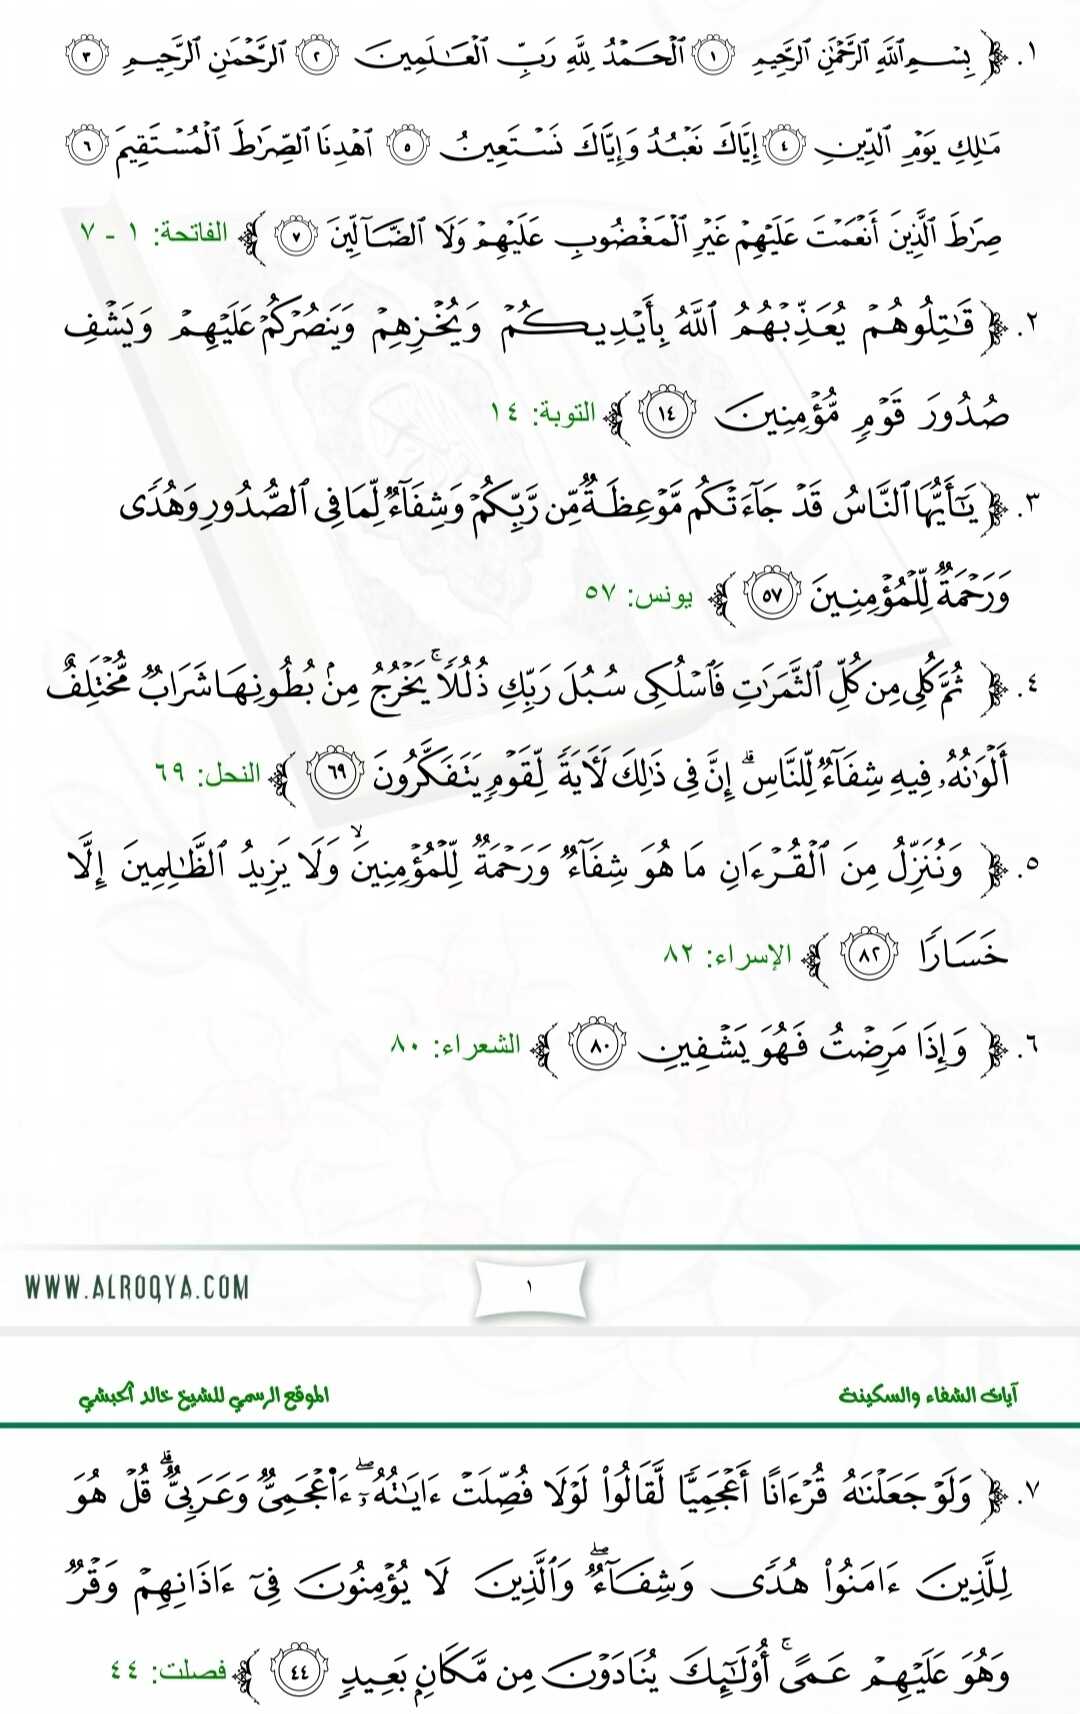 ١. ﴿ بِسْمِ ٱللَّهِ ٱلرَّحْمَٰنِ ٱلرَّحِيمِ ١ ٱلْحَمْدُ لِلَّهِ رَبِّ ٱلْعَٰلَمِينَ ٢ ٱلرَّحْمَٰنِ ٱلرَّحِيمِ ٣
مَٰلِكِ يَوْمِ ٱلدِّينِ ٤ إِيَّاكَ نَعْبُدُ وَإِيَّاكَ نَسْتَعِينُ ٥ ٱهْدِنَا ٱلصِّرَٰطَ ٱلْمُسْتَقِيمَ ٦
صِرَٰطَ ٱلَّذِينَ أَنْعَمْتَ عَلَيْهِمْ غَيْرِ ٱلْمَغْضُوبِ عَلَيْهِمْ وَلَا ٱلضَّآلِّينَ ٧ ﴾ الفاتحة: ١ - ٧
٢. ﴿ قَٰتِلُوهُمْ يُعَذِّبْهُمُ ٱللَّهُ بِأَيْدِيكُمْ وَيُخْزِهِمْ وَيَنصُرْكُمْ عَلَيْهِمْ وَيَشْفِ
صُدُورَ قَوْمٍ مُّؤْمِنِينَ ١٤ ﴾ التوبة: ١٤
٣. ﴿ يَٰٓأَيُّهَا ٱلنَّاسُ قَدْ جَآءَتْكُم مَّوْعِظَةٌ مِّن رَّبِّكُمْ وَشِفَآءٌ لِّمَا فِى ٱلصُّدُورِ وَهُدًى
وَرَحْمَةٌ لِّلْمُؤْمِنِينَ ٥٧ ﴾ يونس: ٥٧
٤. ﴿ ثُمَّ كُلِى مِن كُلِّ ٱلثَّمَرَٰتِ فَٱسْلُكِى سُبُلَ رَبِّكِ ذُلُلًا ۚ يَخْرُجُ مِنۢ بُطُونِهَا شَرَابٌ مُّخْتَلِفٌ
أَلْوَٰنُهُۥ فِيهِ شِفَآءٌ لِّلنَّاسِ ۗ إِنَّ فِى ذَٰلِكَ لَءَايَةً لِّقَوْمٍ يَتَفَكَّرُونَ ٦٩ ﴾ النحل: ٦٩
٥. ﴿ وَنُنَزِّلُ مِنَ ٱلْقُرْءَانِ مَا هُوَ شِفَآءٌ وَرَحْمَةٌ لِّلْمُؤْمِنِينَ ۙ وَلَا يَزِيدُ ٱلظَّٰلِمِينَ إِلَّا
خَسَارًا ٨٢ ﴾ الإسراء: ٨٢
٦. ﴿ وَإِذَا مَرِضْتُ فَهُوَ يَشْفِينِ ٨٠ ﴾ الشعراء: ٨٠
WWW.ALROQYA.COM ١
آيات الشفاء والسكينة الموقع الرسمي للشيخ خالد الحبشي
٧. ﴿ وَلَوْ جَعَلْنَٰهُ قُرْءَانًا أَعْجَمِيًّا لَّقَالُوا۟ لَوْلَا فُصِّلَتْ ءَايَٰتُهُۥٓ ۖ ءَا۬عْجَمِىٌّ وَعَرَبِىٌّ ۗ قُلْ هُوَ
لِلَّذِينَ ءَامَنُوا۟ هُدًى وَشِفَآءٌ ۖ وَٱلَّذِينَ لَا يُؤْمِنُونَ فِىٓ ءَاذَانِهِمْ وَقْرٌ
وَهُوَ عَلَيْهِمْ عَمًى ۚ أُو۟لَٰٓئِكَ يُنَادَوْنَ مِن مَّكَانٍۭ بَعِيدٍ ٤٤ ﴾ فصلت: ٤٤